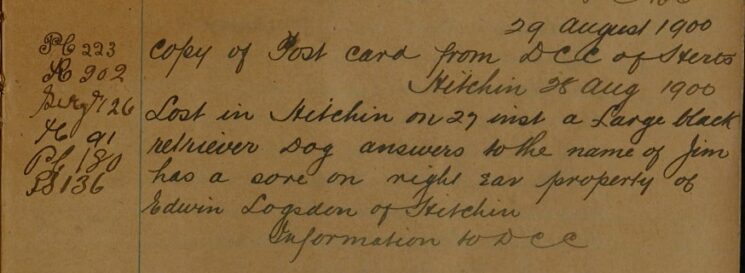 29 August 1900
PC 223 Copy of Post card from DCC of Herts
R 202 Hitchin 28 Aug 1900
Sergt 126 Lost in Hitchin on 27 inst a Large black
H 91 retriever Dog answers to the name of Jim
PC 180 has a sore on right Ear property of
PS 136 Edwin Logsdon of Hitchin
Information to DCC